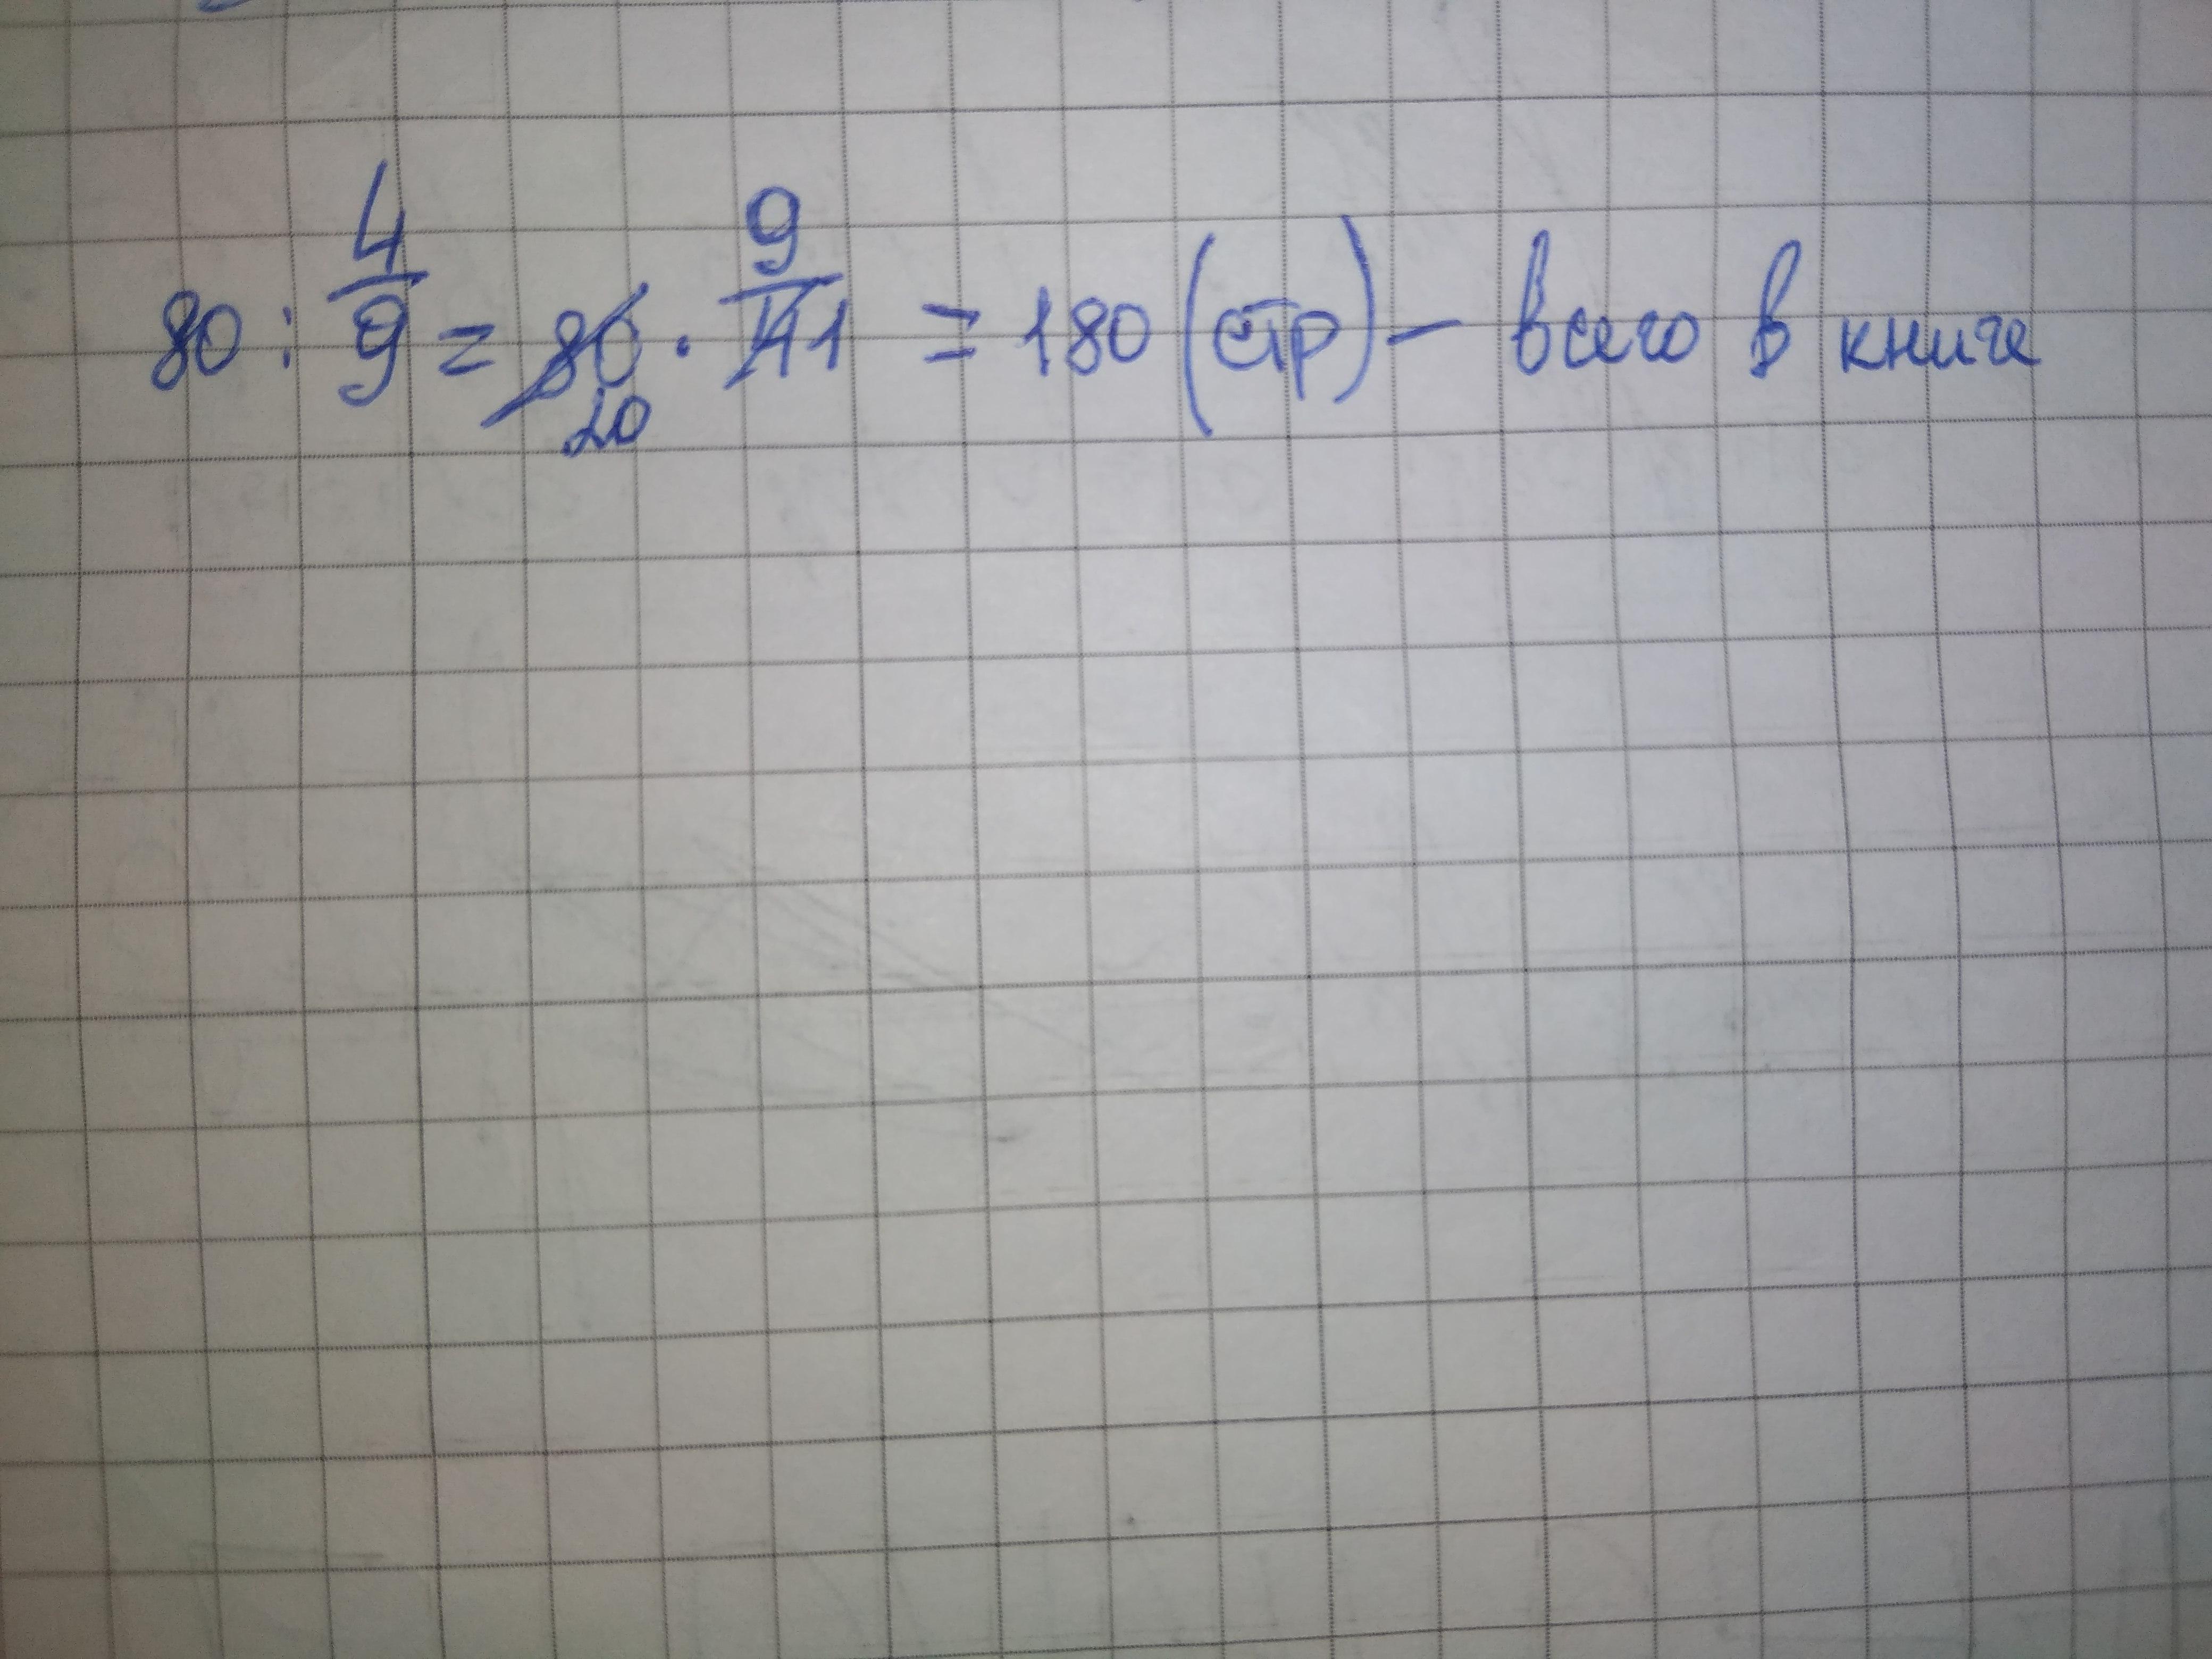 80 : 4/9 = 80 20 · 9/4 1 = 180 (стр) – всего в книге